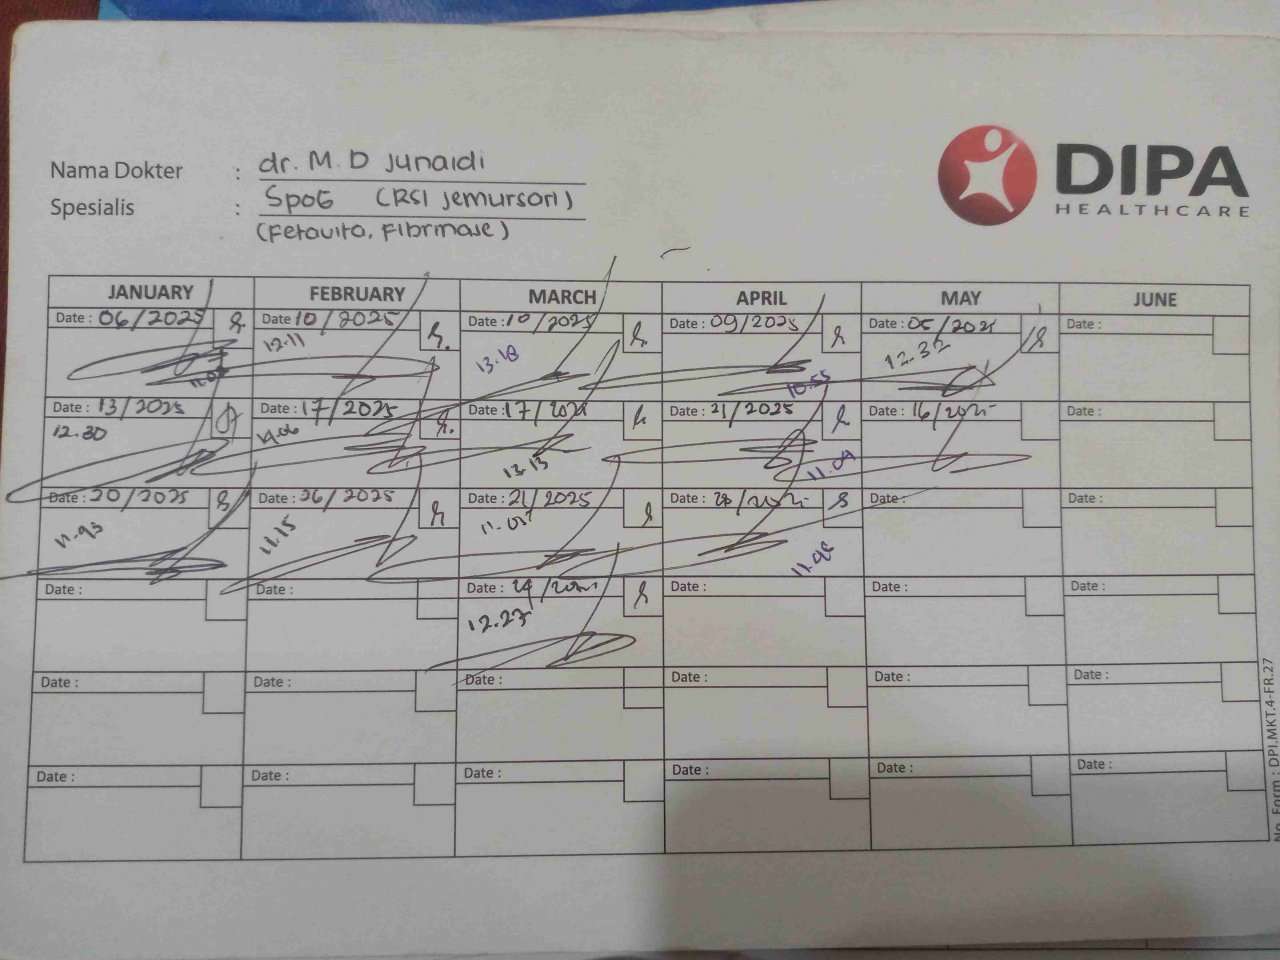 DIPA
HEALTHCARE
Nama Dokter : dr. M. D Junaidi
Spesialis : SpOG (RSI Jemursari)
(Fetavita, Fibrinase)
JANUARY FEBRUARY MARCH APRIL MAY JUNE
Date : 06/2025 Date : 10/2025 Date : 10/2025 Date : 09/2025 Date : 05/2025 Date :
12.11 13.18 10.55 12.32
Date : 13/2025 Date : 17/2025 Date : 17/2025 Date : 21/2025 Date : 16/2025 Date :
12.30 13.13 11.09
Date : 20/2025 Date : 26/2025 Date : 21/2025 Date : 28/2025 Date : Date :
11.43 11.15
Date : Date : Date : 24/2025 Date : Date : Date :
12.23
Date : Date : Date : Date : Date : Date :
Date : Date : Date : Date : Date : Date :
No. Form : DPI.MKT.4-FR.27